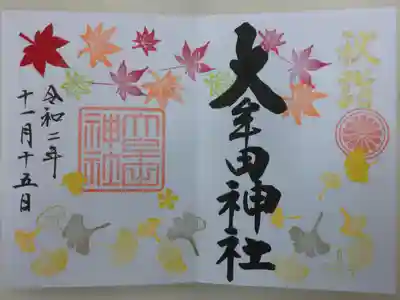 秋詣
大牟田神社
大牟田神社
令和二年
十一月十五日